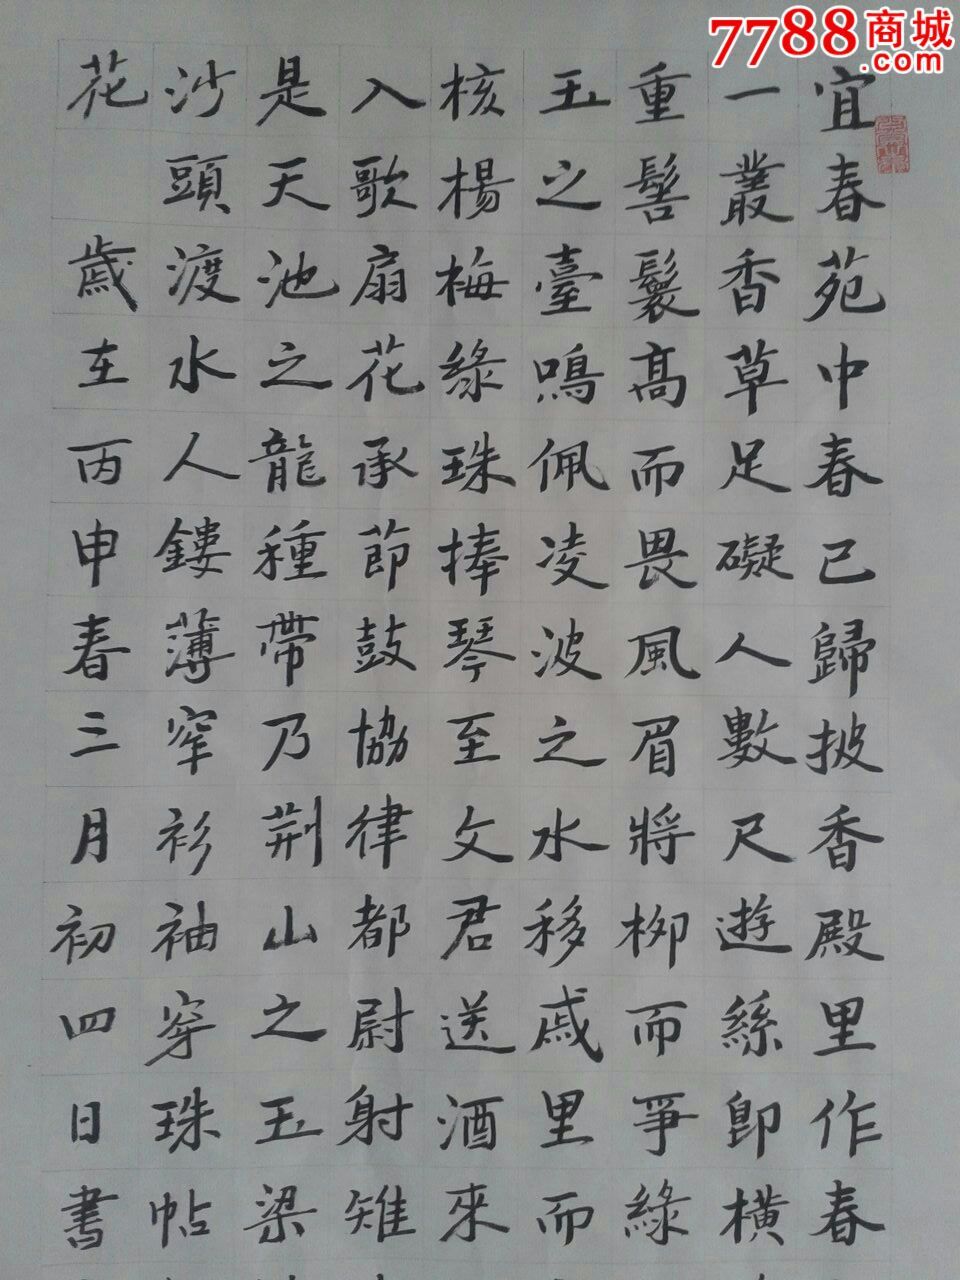 7788商城
.com
宜春苑中春已歸披香殿里作春
一叢香草足礙人數尺遊絲卽横
重髻鬟高而畏風眉將柳而爭綠
玉之臺鳴佩凌波之水移戚里而
核楊梅綠珠捧琴至文君送酒來
入歌扇花承節鼓協律都尉射雉
是天池之龍種帶乃荆山之玉梁
沙頭渡水人鏤薄窄衫袖穿珠帖
花 歲在丙申春三月初四日書